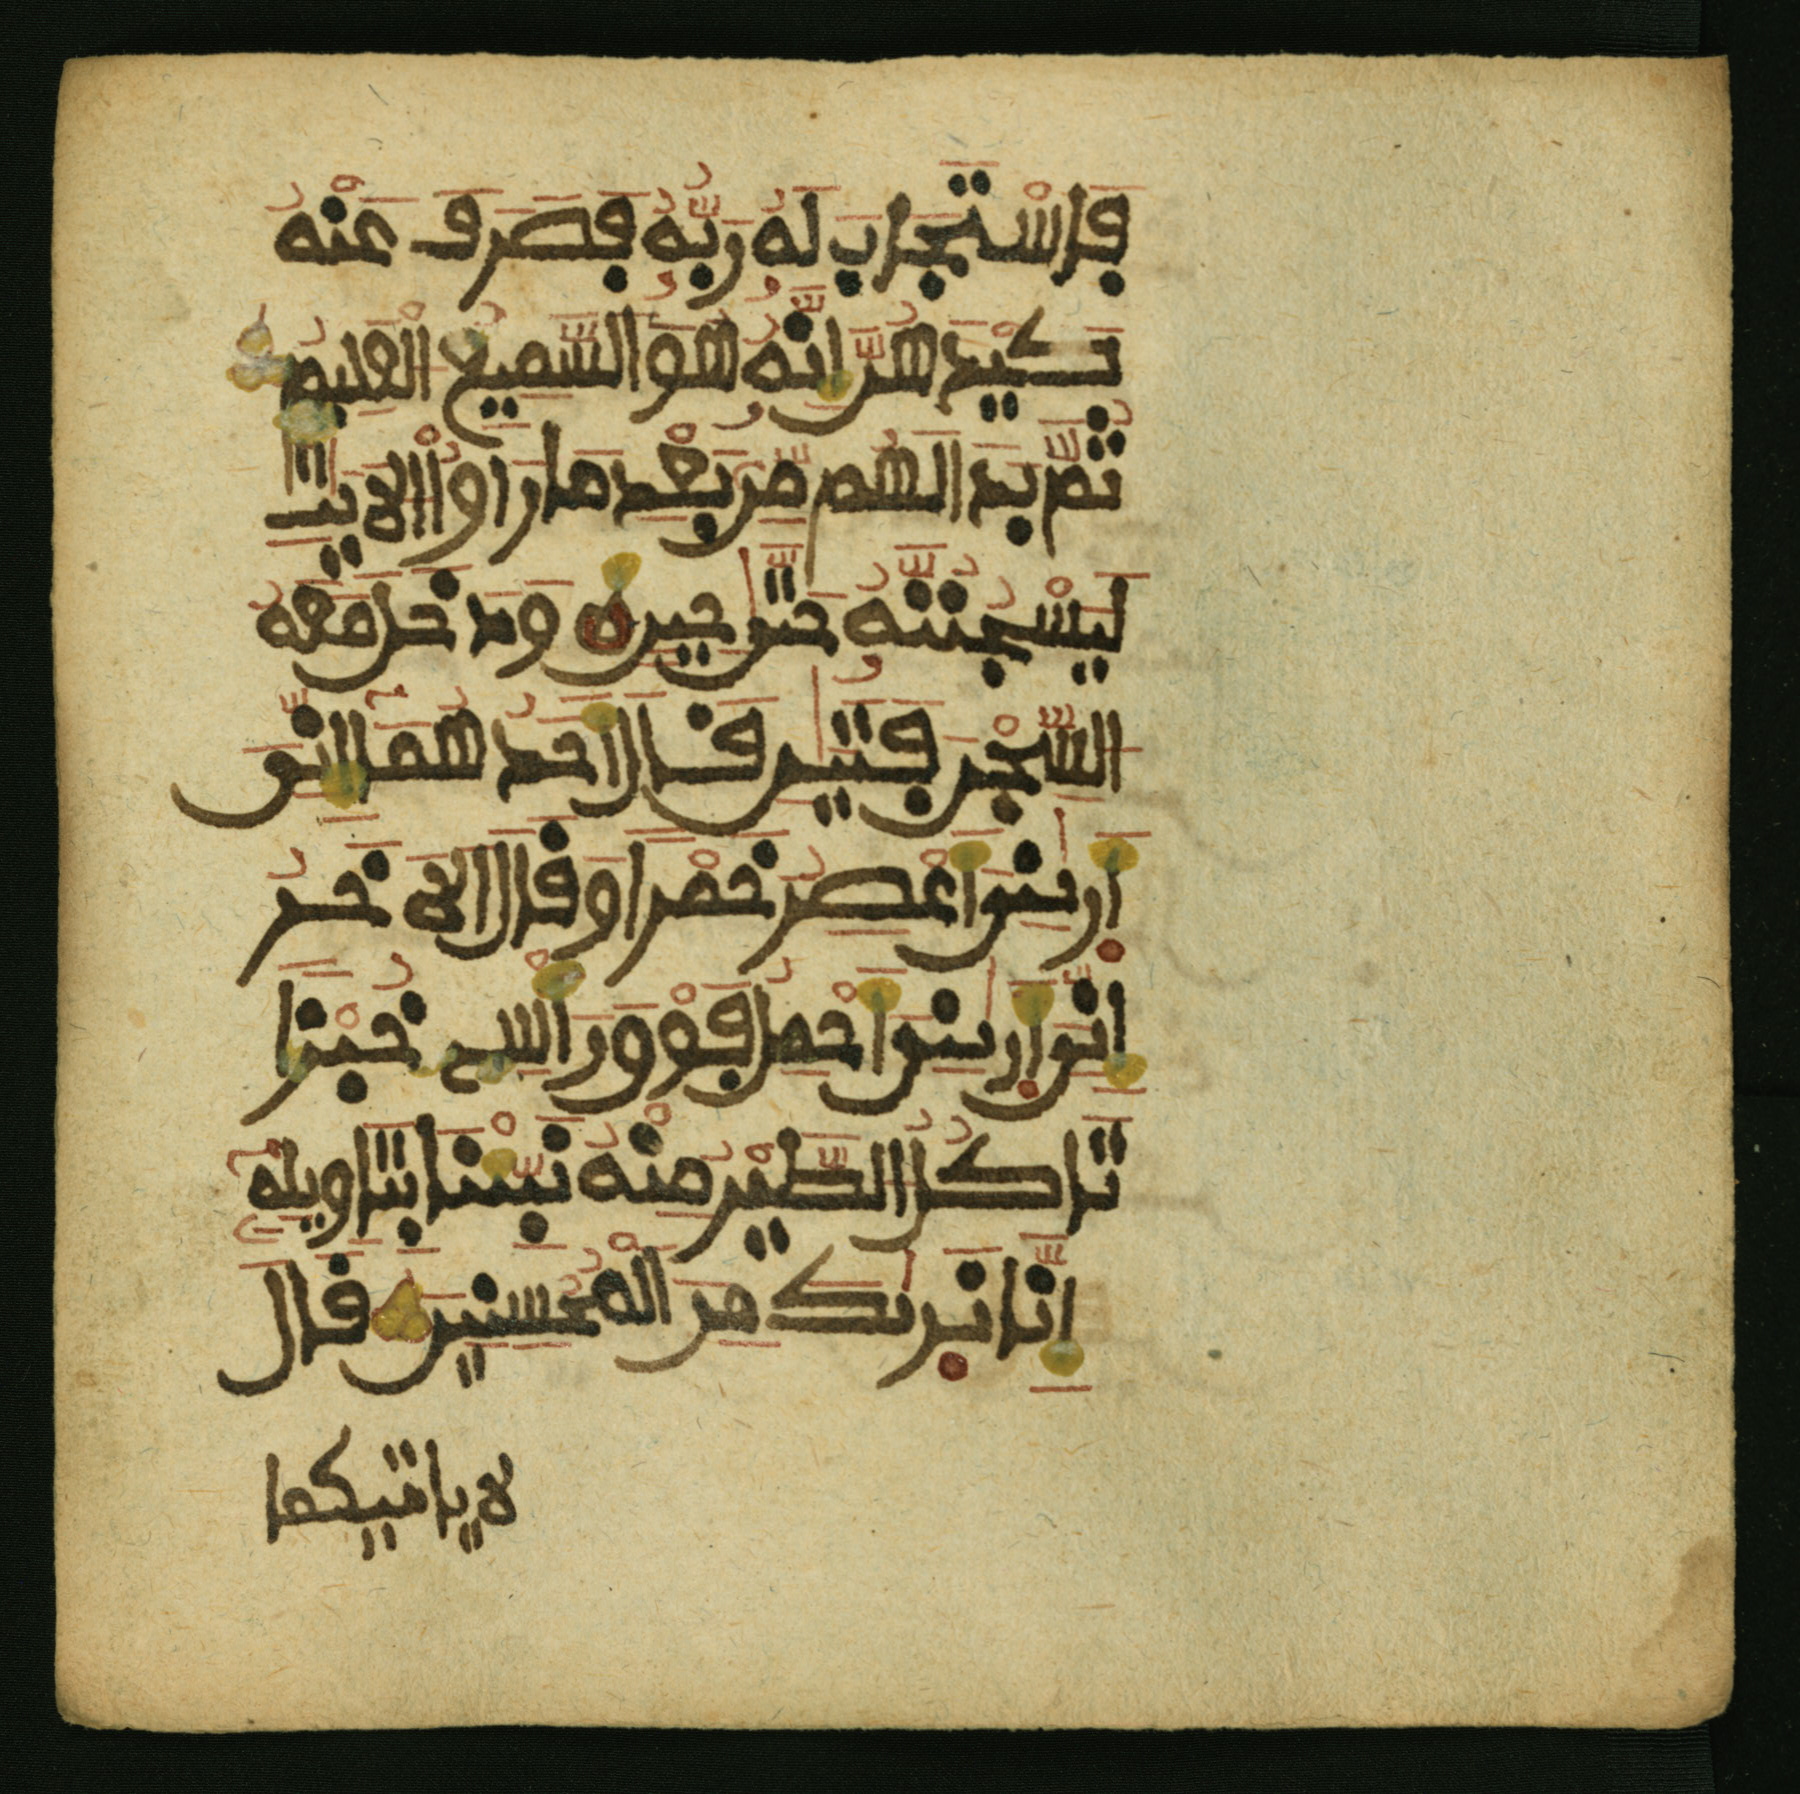 فَاسْتَجَابَ لَهُ رَبُّهُ فَصَرَفَ عَنْهُ
كَيْدَهُنَّ إِنَّهُ هُوَ السَّمِيعُ الْعَلِيمُ
ثُمَّ بَدَا لَهُم مِّن بَعْدِ مَا رَأَوُا الْآيَٰتِ
لَيَسْجُنُنَّهُ حَتَّىٰ حِينٍ وَدَخَلَ مَعَهُ
السِّجْنَ فَتَيَٰنِ قَالَ أَحَدُهُمَا إِنِّي
أَرَىٰنِي أَعْصِرُ خَمْرًا وَقَالَ الْآخَرُ
إِنِّي أَرَىٰنِي أَحْمِلُ فَوْقَ رَأْسِي خُبْزًا
تَأْكُلُ الطَّيْرُ مِنْهُ نَبِّئْنَا بِتَأْوِيلِهِ
إِنَّا نَرَىٰكَ مِنَ الْمُحْسِنِينَ قَالَ
لا ياتيكما